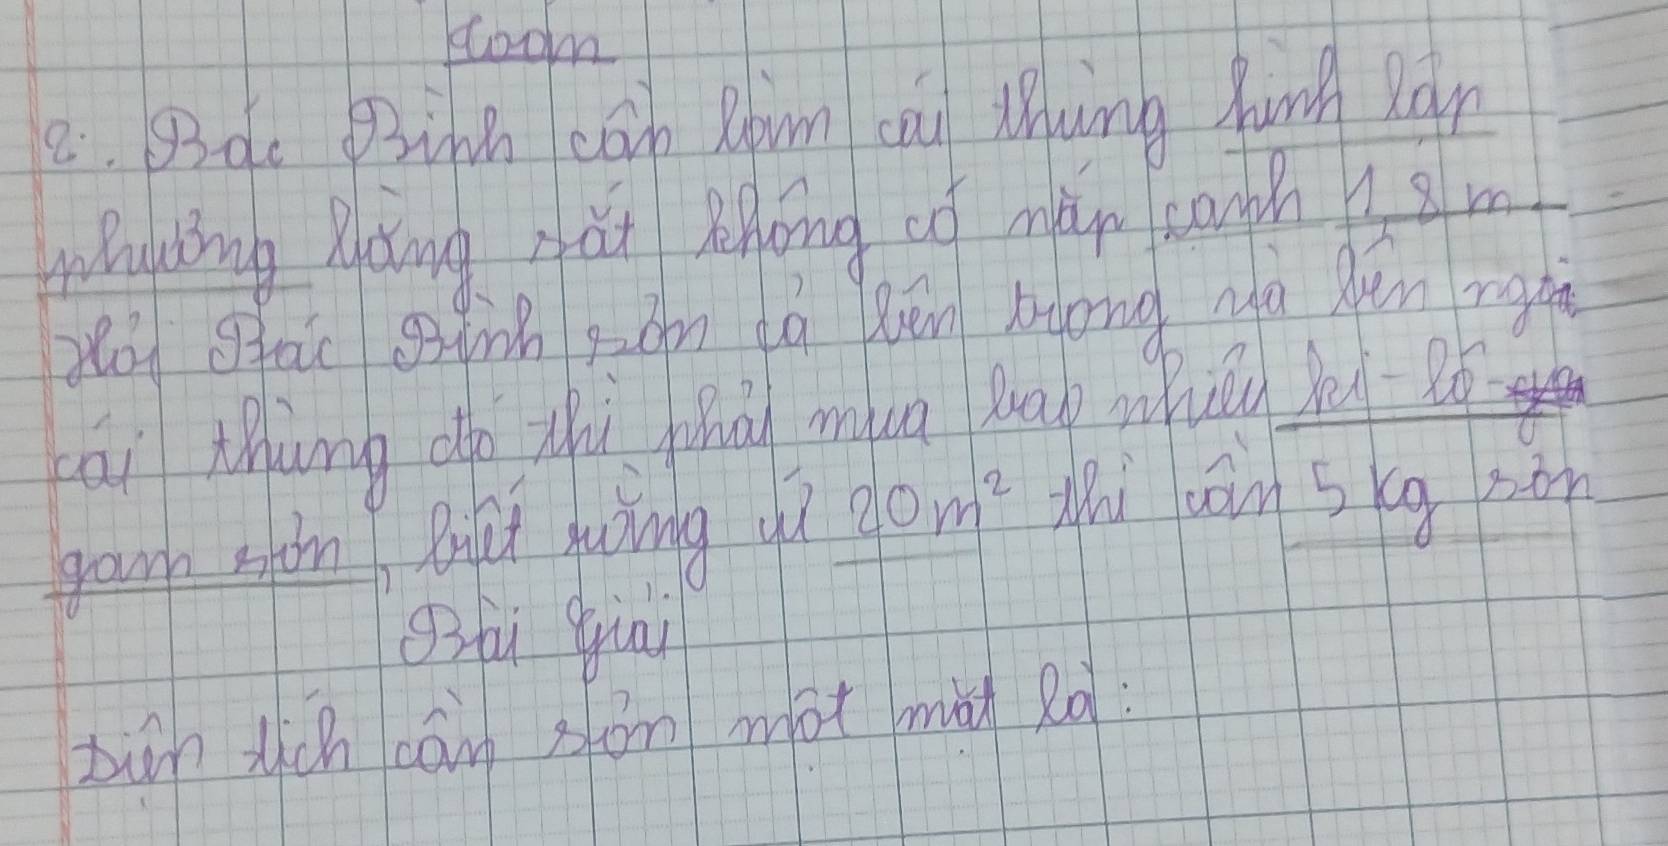 2. Bác Bình cần làm cái thùng hình lập
phương bằng sắt không có nắp cạnh 1,8 m
Hỏi Bác Bình sơn cả bên trong và bên ngoài
cái thùng đó thì phải mua bao nhiêu ki-lô
gam sơn, biết rằng cứ 20m² thì cần 5 kg sơn
Bài giải
Diện tích cần sơn một mặt là: